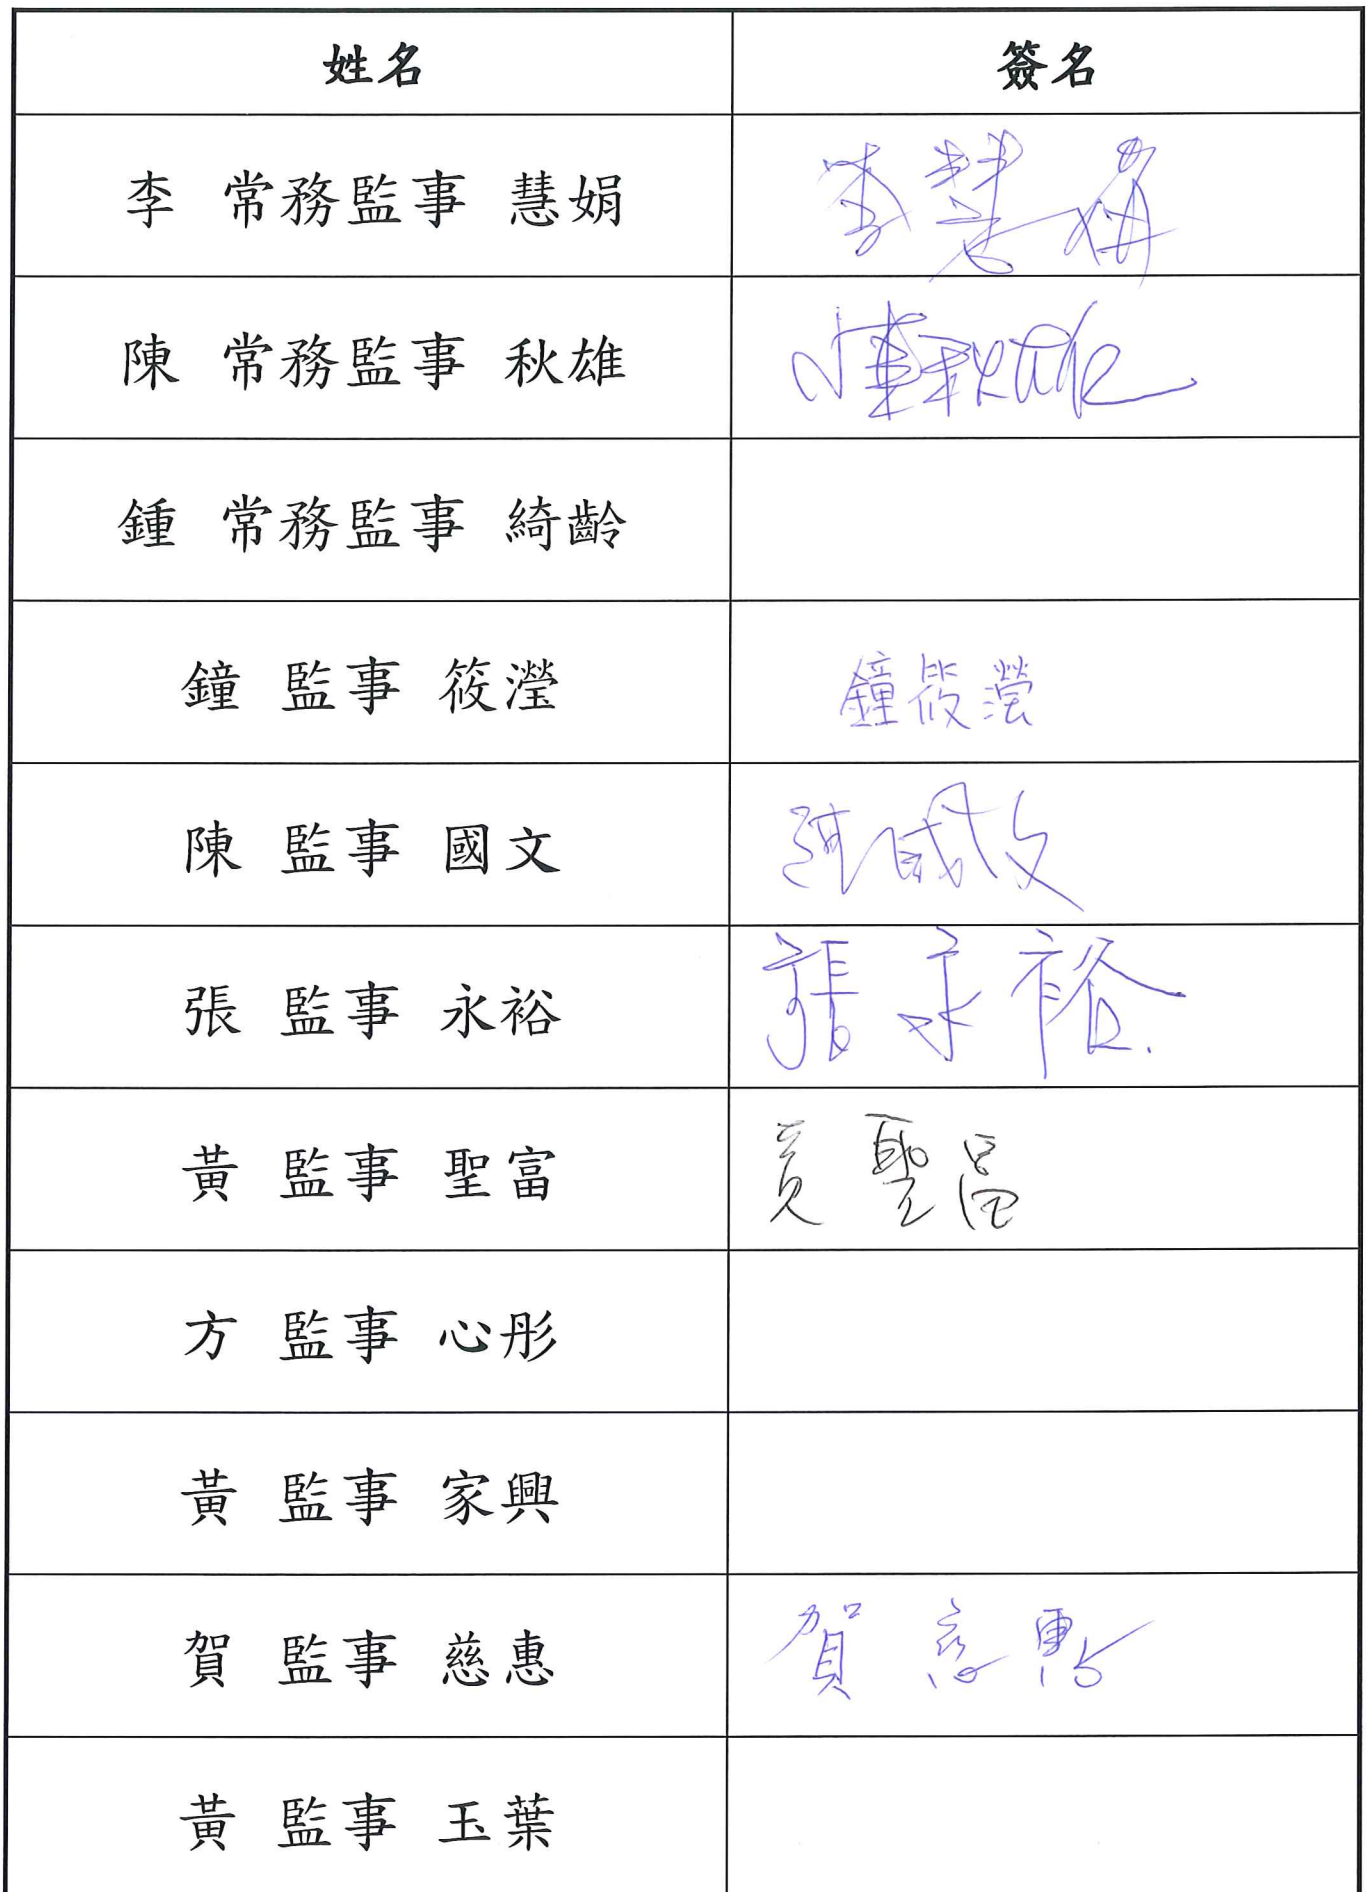 姓名 簽名
李 常務監事 慧娟 李慧娟
陳 常務監事 秋雄 陳秋雄
鍾 常務監事 綺齡
鐘 監事 筱瀅 鐘筱瀅
陳 監事 國文 陳國文
張 監事 永裕 張永裕
黃 監事 聖富 黃聖富
方 監事 心彤
黃 監事 家興
賀 監事 慈惠 賀慈惠
黃 監事 玉葉